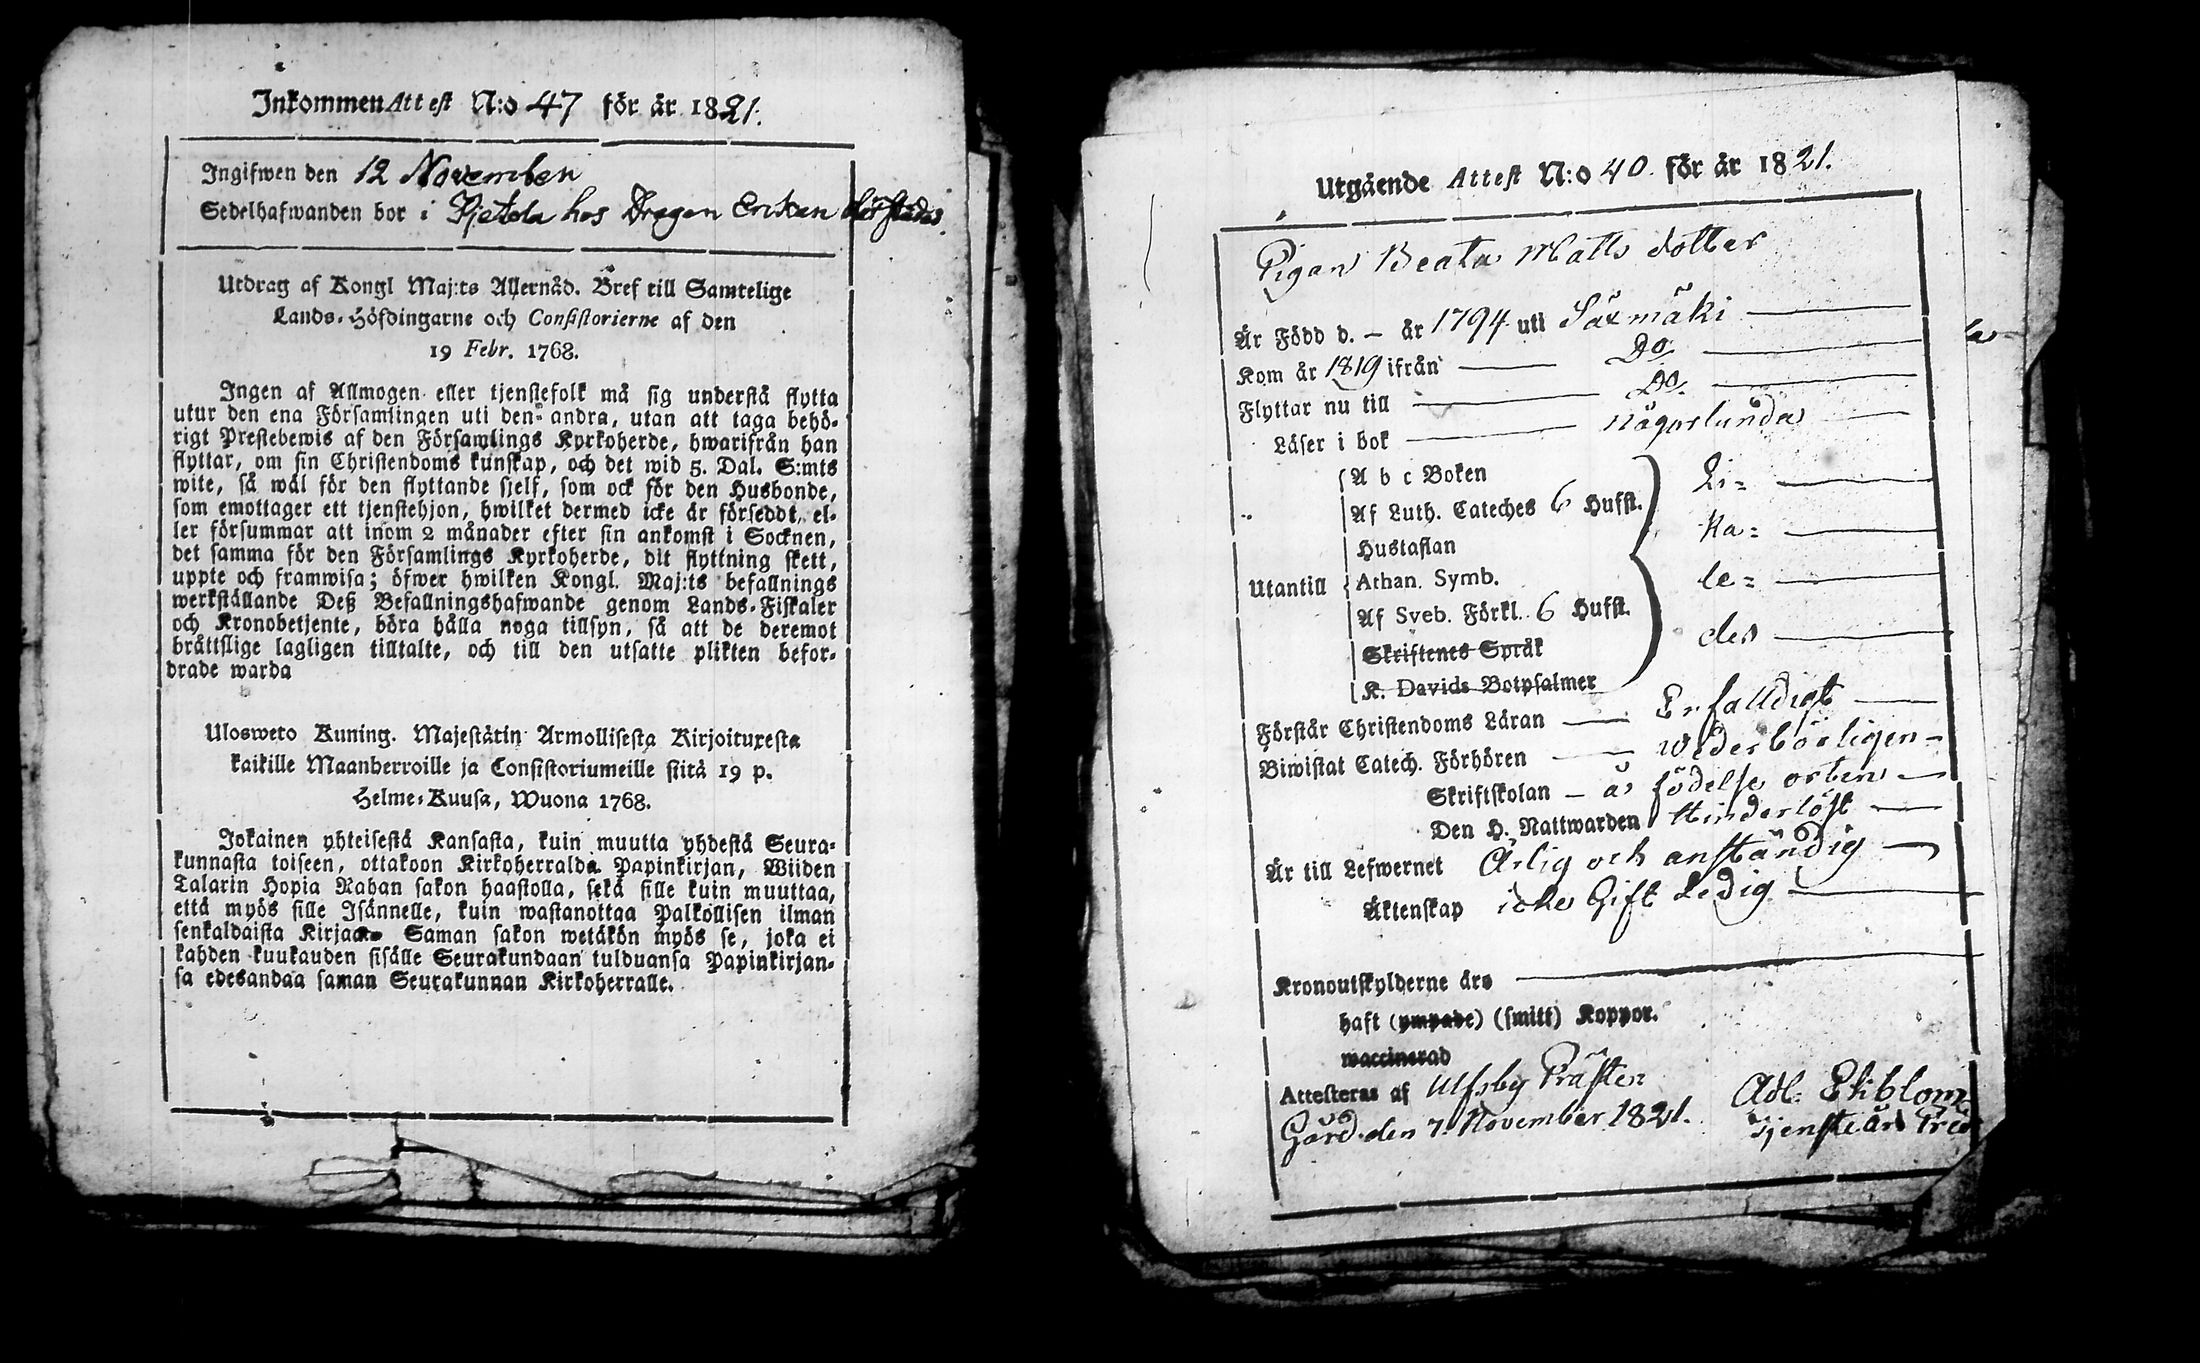 Inkommen Attest N:o 47 för år 1821.
Ingifwen den 12 November
Sedelhafwanden bor i hos Dragon
Utdrag af Kongl Maj:ts Allernåd. Bref till Samtelige
Lands-Höfdingarne och Consistorierne af den
19 Febr. 1768.
Ingen af Allmogen eller tjenstefolk må sig understå flytta
utur den ena Församlingen uti den andra, utan att taga behö-
rigt Prestebewis af den Församlings Kyrkoherde, hwarifrån han
flyttar, om sin Christendoms kunskap, och det wid 5. Dal. S:mts
wite, så wäl för den flyttande sjelf, som ock för den Husbonde,
som emottager ett tjenstehjon, hwilket dermed icke är förseddt, el-
ler försummar att inom 2 månader efter sin ankomst i Socknen,
det samma för den Församlings Kyrkoherde, dit flyttning skett,
uppte och framwisa; öfwer hwilken Kongl. Maj:ts befallnings
werkställande Deß Befallningshafwande genom Lands-Fiskaler
och Kronobetjente, böra hålla noga tillsyn, så att de deremot
bråttslige lagligen tilltalte, och till den utsatte plikten befor-
drade warda
Ulosweto Kuning. Majestätin Armollisesta Kirjoituxesta
kaikille Maanherroille ja Consistoriumeille siitä 19 p.
Helme-Kuusa, Wuona 1768.
Jokainen yhteisestä Kansasta, kuin muutta yhdestä Seura-
kunnasta toiseen, ottakoon Kirkoherralda Papinkirjan, Wiiden
Talarin Hopia Rahan sakon haastolla, sekä sille kuin muuttaa,
että myös sille Isännelle, kuin wastanottaa Palkollisen ilman
senkaldaista Kirjaa. Saman sakon wetäkön myös se, joka ei
kahden kuukauden sisälle Seurakundaan tulduansa Papinkirjan-
sa edesandaa saman Seurakunnan Kirkoherralle.
Utgående Attest N:o 40. för år 1821.
Pigan Beata Matts dotter
Är Född d. – år 1794 uti Säxmäki
Kom år 1819 ifrån Do
Flyttar nu till Do.
Läser i bok någorlunda
Utantill
A b c Boken Li=
Af Luth. Cateches 6 Hufst.
Hustaflan ka=
Athan. Symb. le=
Af Sveb. Förkl. 6 Hufst.
Skriftenes Språk des
K. Davids Botpsalmer
Förstår Christendoms Läran Enfalldigt
Biwistat Catech. Förhören wederbörligen
Skriftskolan – å födelse orten
Den H. Nattwarden Hinderlöst
Är till Lefwernet Ärlig och anständig
Äktenskap icke Gift Ledig
Kronoutskylderne äro
haft (ympade) (smitt) Koppor.
waccinerad
Attesteras af Ulfsby Präste
Gård. den 7. November 1821.
Adl. Ekblom